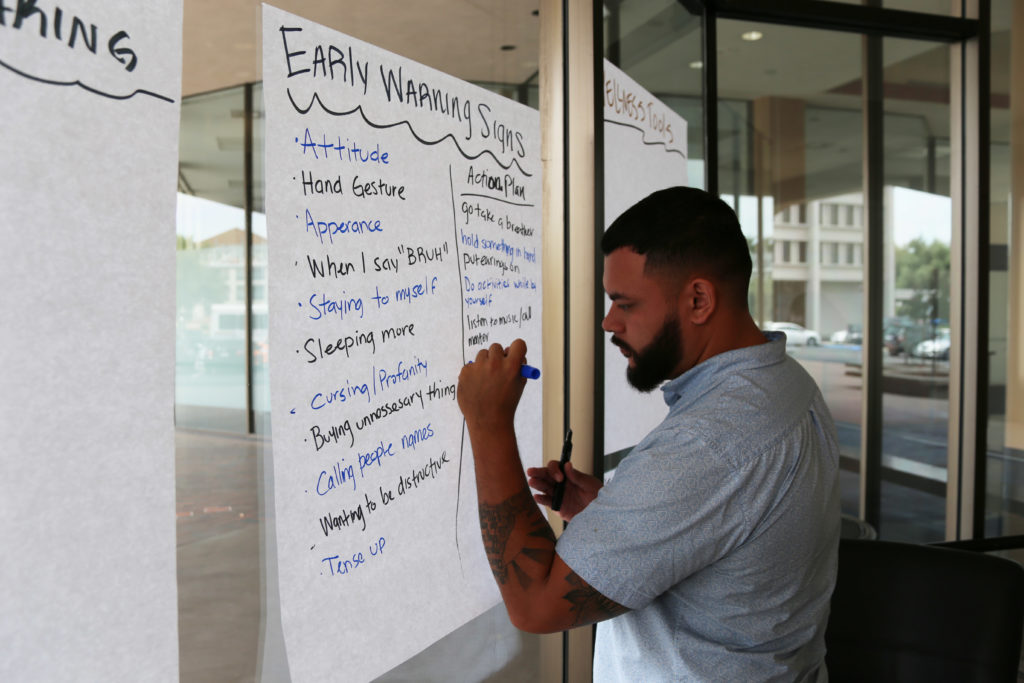 RKING
EARly WARNING SIgNS
· Attitude
· Hand Gesture
· Apperance
· When I say "BRUH"
· Staying to myself
· Sleeping more
· Cursing/Profanity
· Buying unnossesary thing
· Calling people names
· Wanting to be distructive
· Tense up
Action Plan
go take a breather
hold something in hand
put earings on
Do activities while by
yourself
listen to music/
matter
ELLNESS Tools